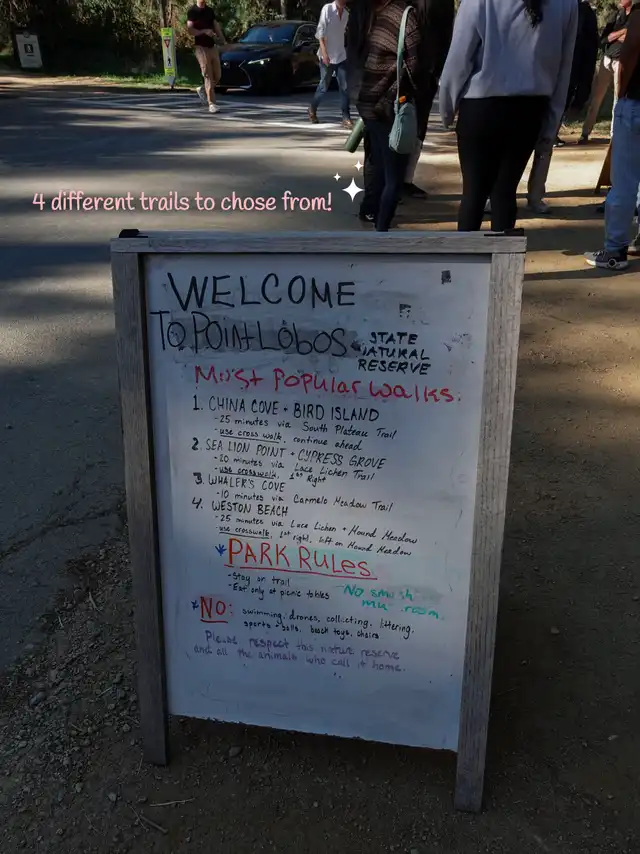 4 different trails to chose from!
WELCOME
To Point Lobos STATE
NATURAL
RESERVE
Most Popular walks:
1. CHINA COVE + BIRD ISLAND
-25 minutes via South Plateau Trail
-use cross walk, continue ahead
2. SEA LION POINT + CYPRESS GROVE
-20 minutes via Lace Lichen Trail
-use crosswalk, 1st Right
3. WHALER'S COVE
-10 minutes via Carmelo Meadow Trail
4. WESTON BEACH
-25 minutes via Lace Lichen + Mound Meadow
-use crosswalk, 1st right, left on Mound Meadow
*PARK RULES
-Stay on trail
-Eat only at picnic tables
No
*NO: swimming, drones, collecting, littering,
sports balls, beach toys, chairs
Please respect this nature reserve
and all the animals who call it home.